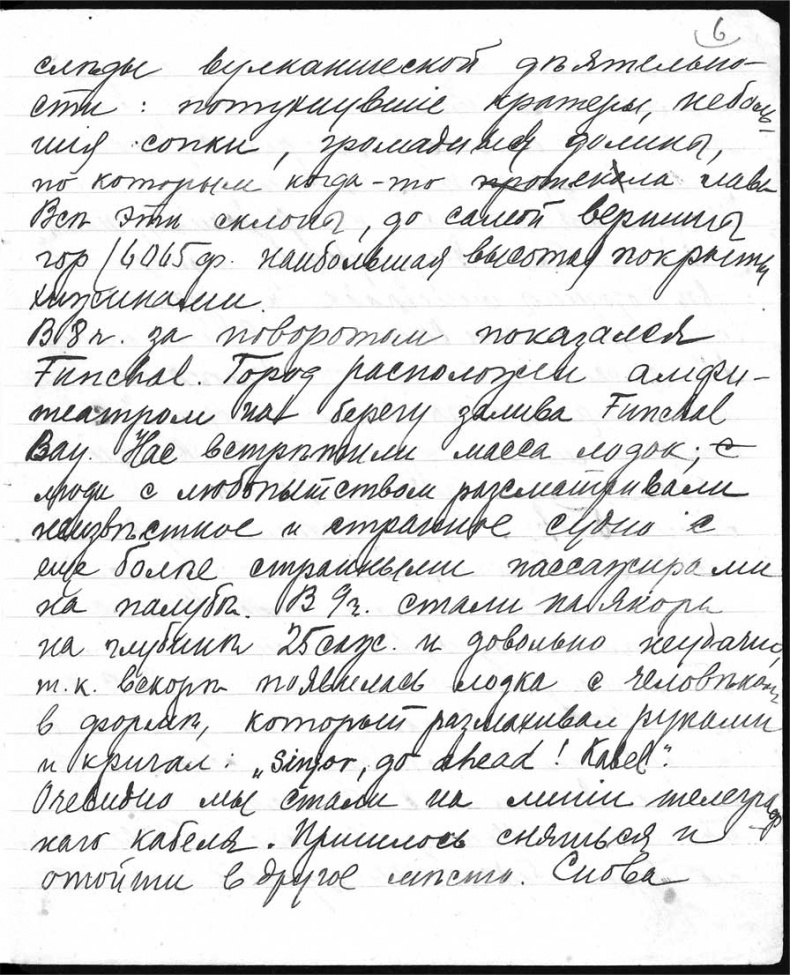 6
слѣды вулканической дѣятельно-
сти: потухнувшіе кратеры, неболь-
шія сопки, громадныя долины,
по которым когда-то протекала лава
Всѣ эти склоны, до самой вершины
гор /6065ф. наибольшая высота/ покрыты
хижинами.
В 8ч. за поворотом показался
Funchal. Город расположен амфи-
театром на берегу залива Funchal
Bay. Нас встрѣтили масса лодок; с
люди с любопытством разсматривали
неизвѣстное и странное судно с
еще болѣе странными пассажирами
на палубѣ. В 9ч. стали на якорь
на глубинѣ 25саж. и довольно неудачно,
т.к. вскорѣ появилась лодка с человѣком
в формѣ, который размахивал руками
и кричал: „Sinjor, go ahead! Kabel".
Очевидно мы стали на линіи телеграф
наго кабеля. Пришлось сняться и
отойти в другое мѣсто. Снова